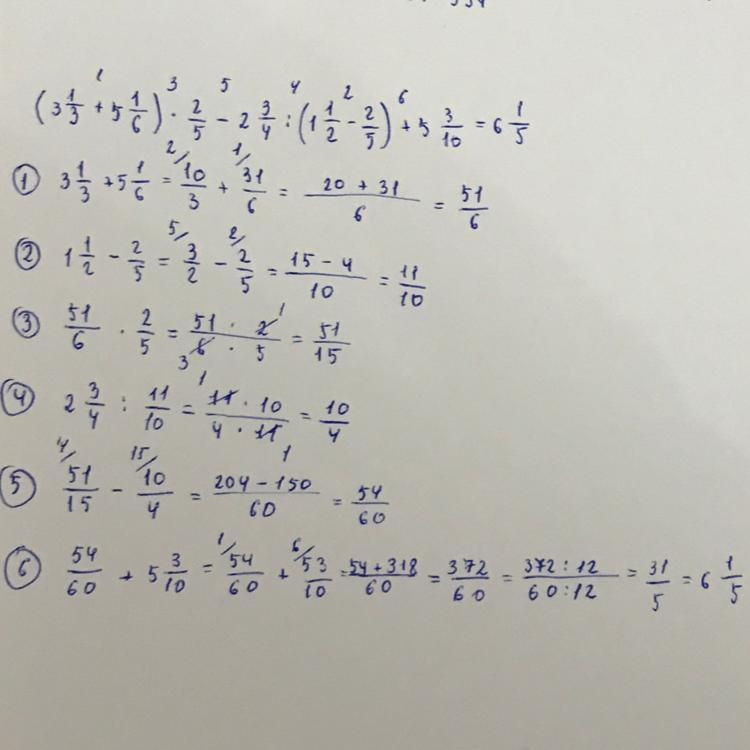 (3 1/3 + 5 1/6) · 2/5 − 2 3/4 : (1 1/2 − 2/5) + 5 3/10 = 6 1/5
① 3 1/3 + 5 1/6 = 10/3 + 31/6 = (20 + 31)/6 = 51/6
② 1 1/2 − 2/5 = 3/2 − 2/5 = (15 − 4)/10 = 11/10
③ 51/6 · 2/5 = (51 · 2)/(6 · 5) = 51/15
④ 2 3/4 : 11/10 = (11 · 10)/(4 · 11) = 10/4
⑤ 51/15 − 10/4 = (204 − 150)/60 = 54/60
⑥ 54/60 + 5 3/10 = 54/60 + 53/10 = (54 + 318)/60 = 372/60 = (372 : 12)/(60 : 12) = 31/5 = 6 1/5